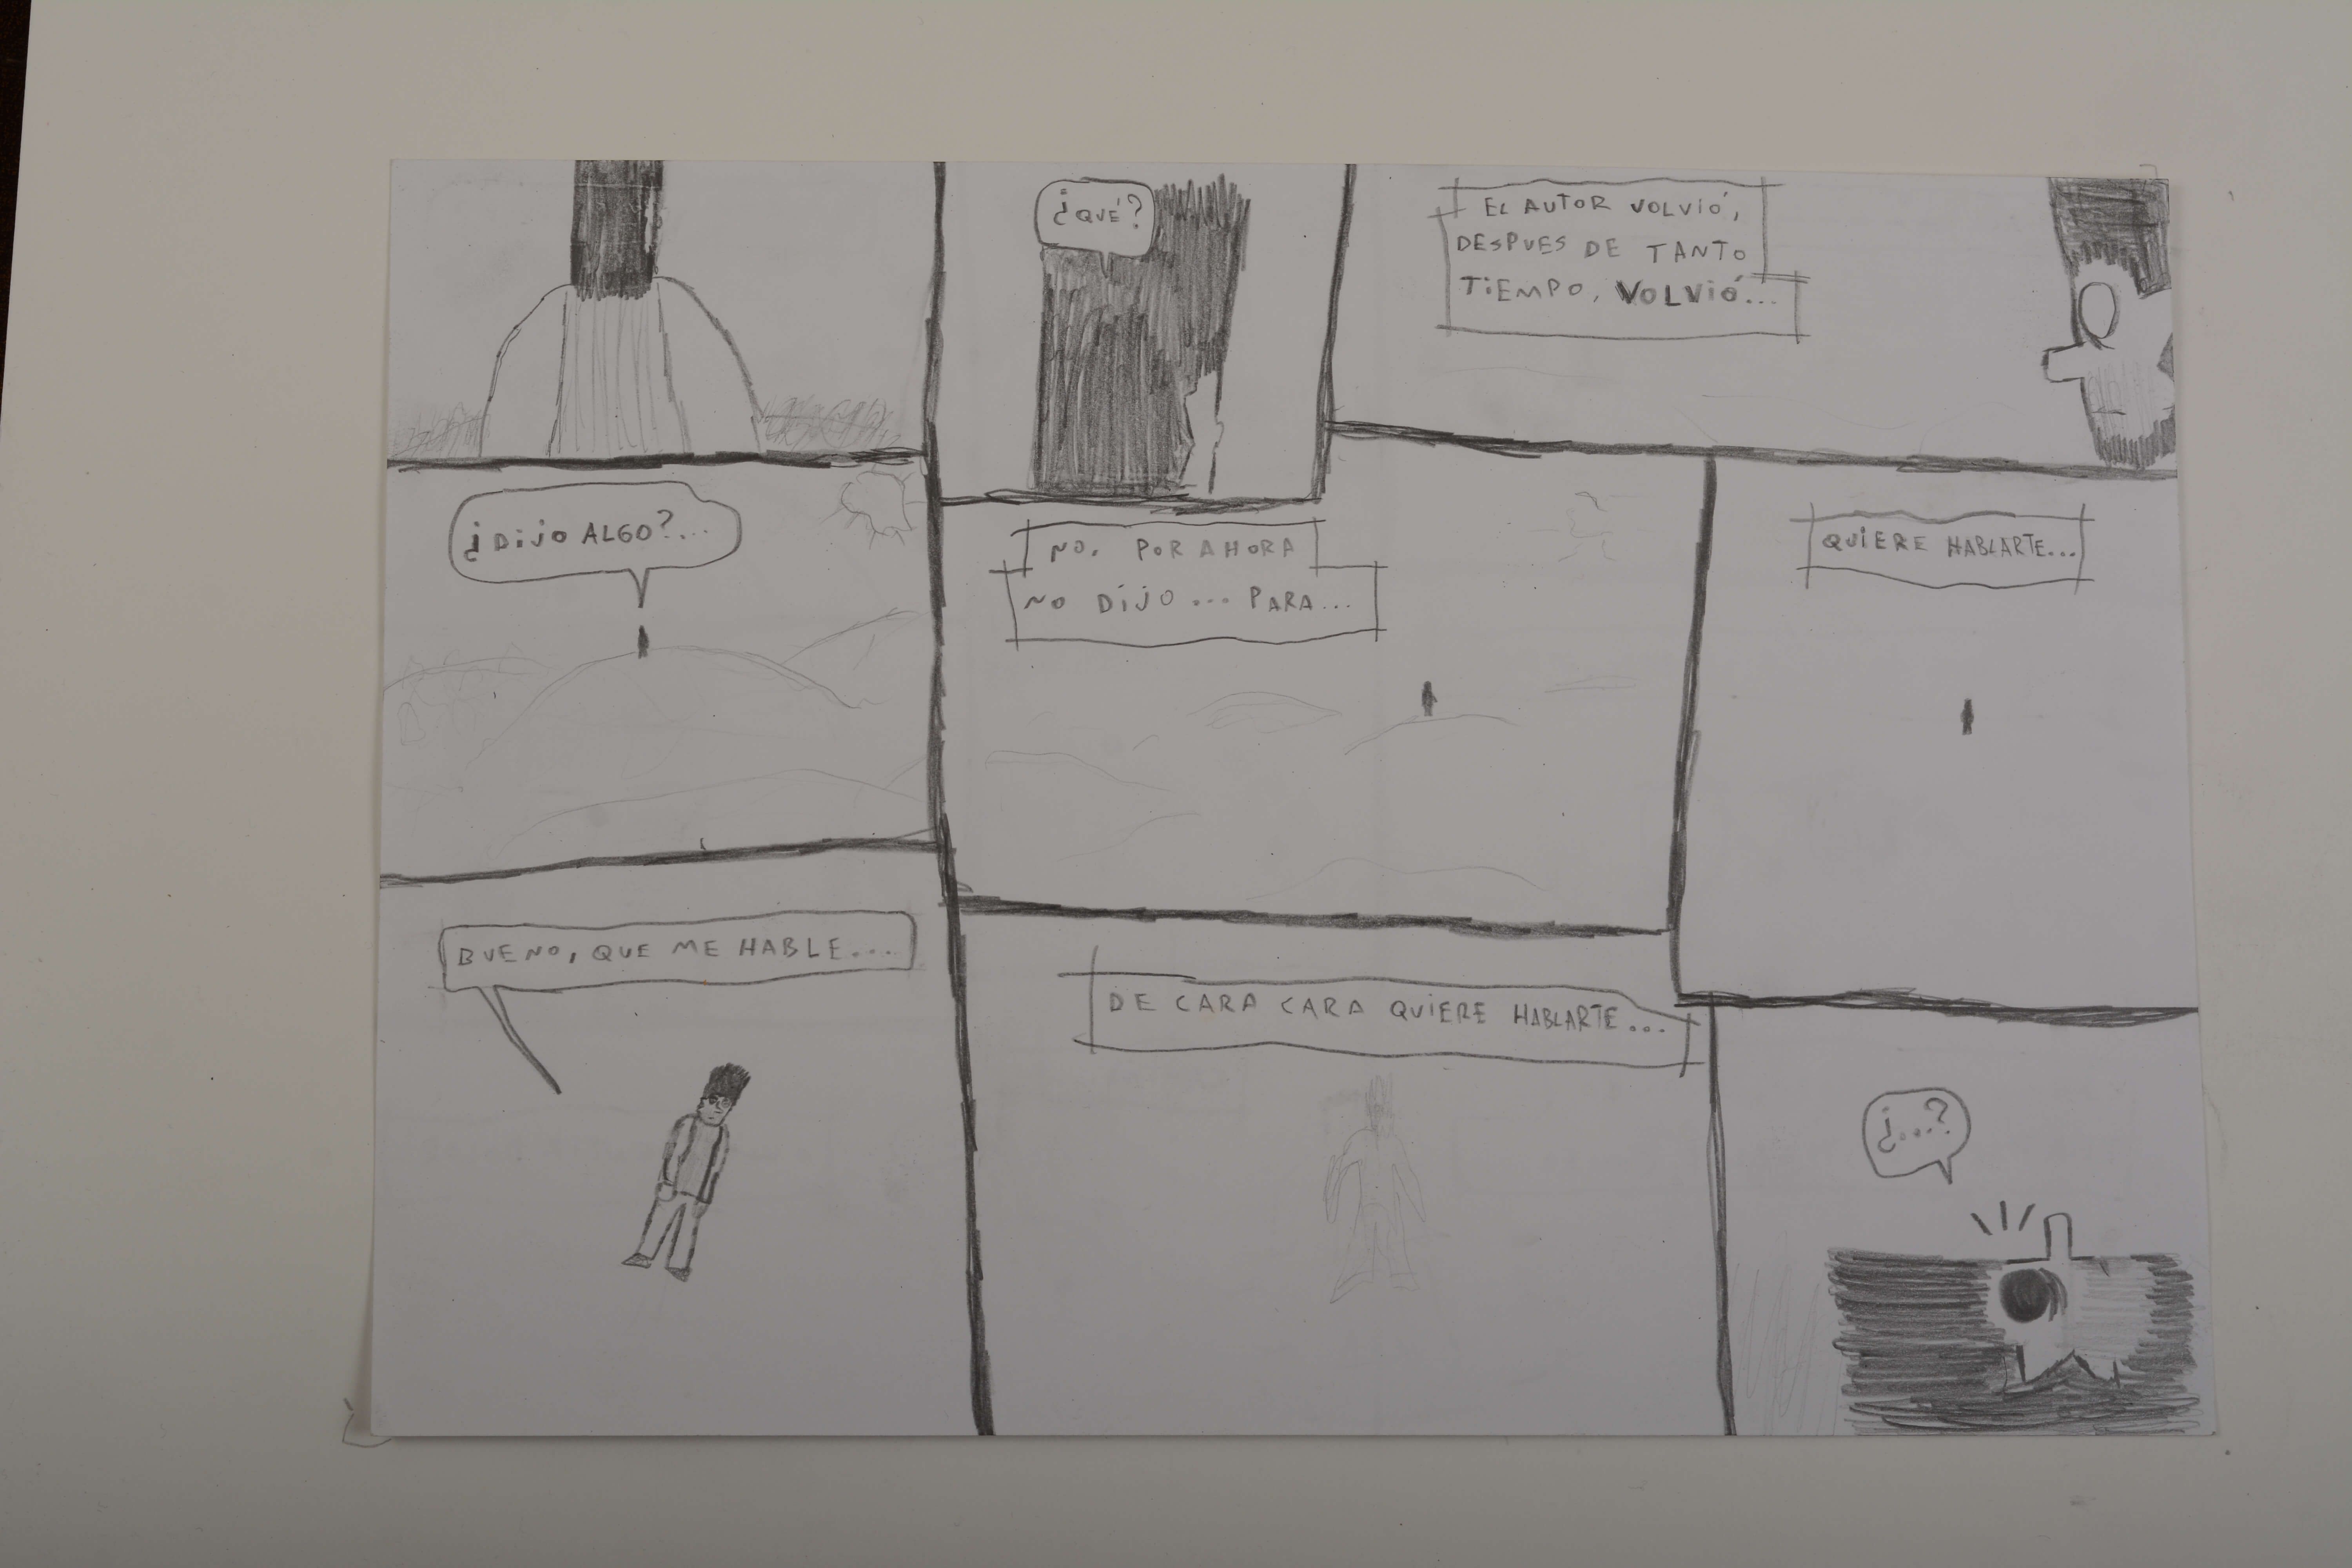 ¿QUÉ?
EL AUTOR VOLVIÓ,
DESPUES DE TANTO
TIEMPO, VOLVIÓ...
¿DIJO ALGO?...
NO. POR AHORA
NO DIJO... PARA...
QUIERE HABLARTE...
BUENO, QUE ME HABLE....
DE CARA CARA QUIERE HABLARTE...
¿...?